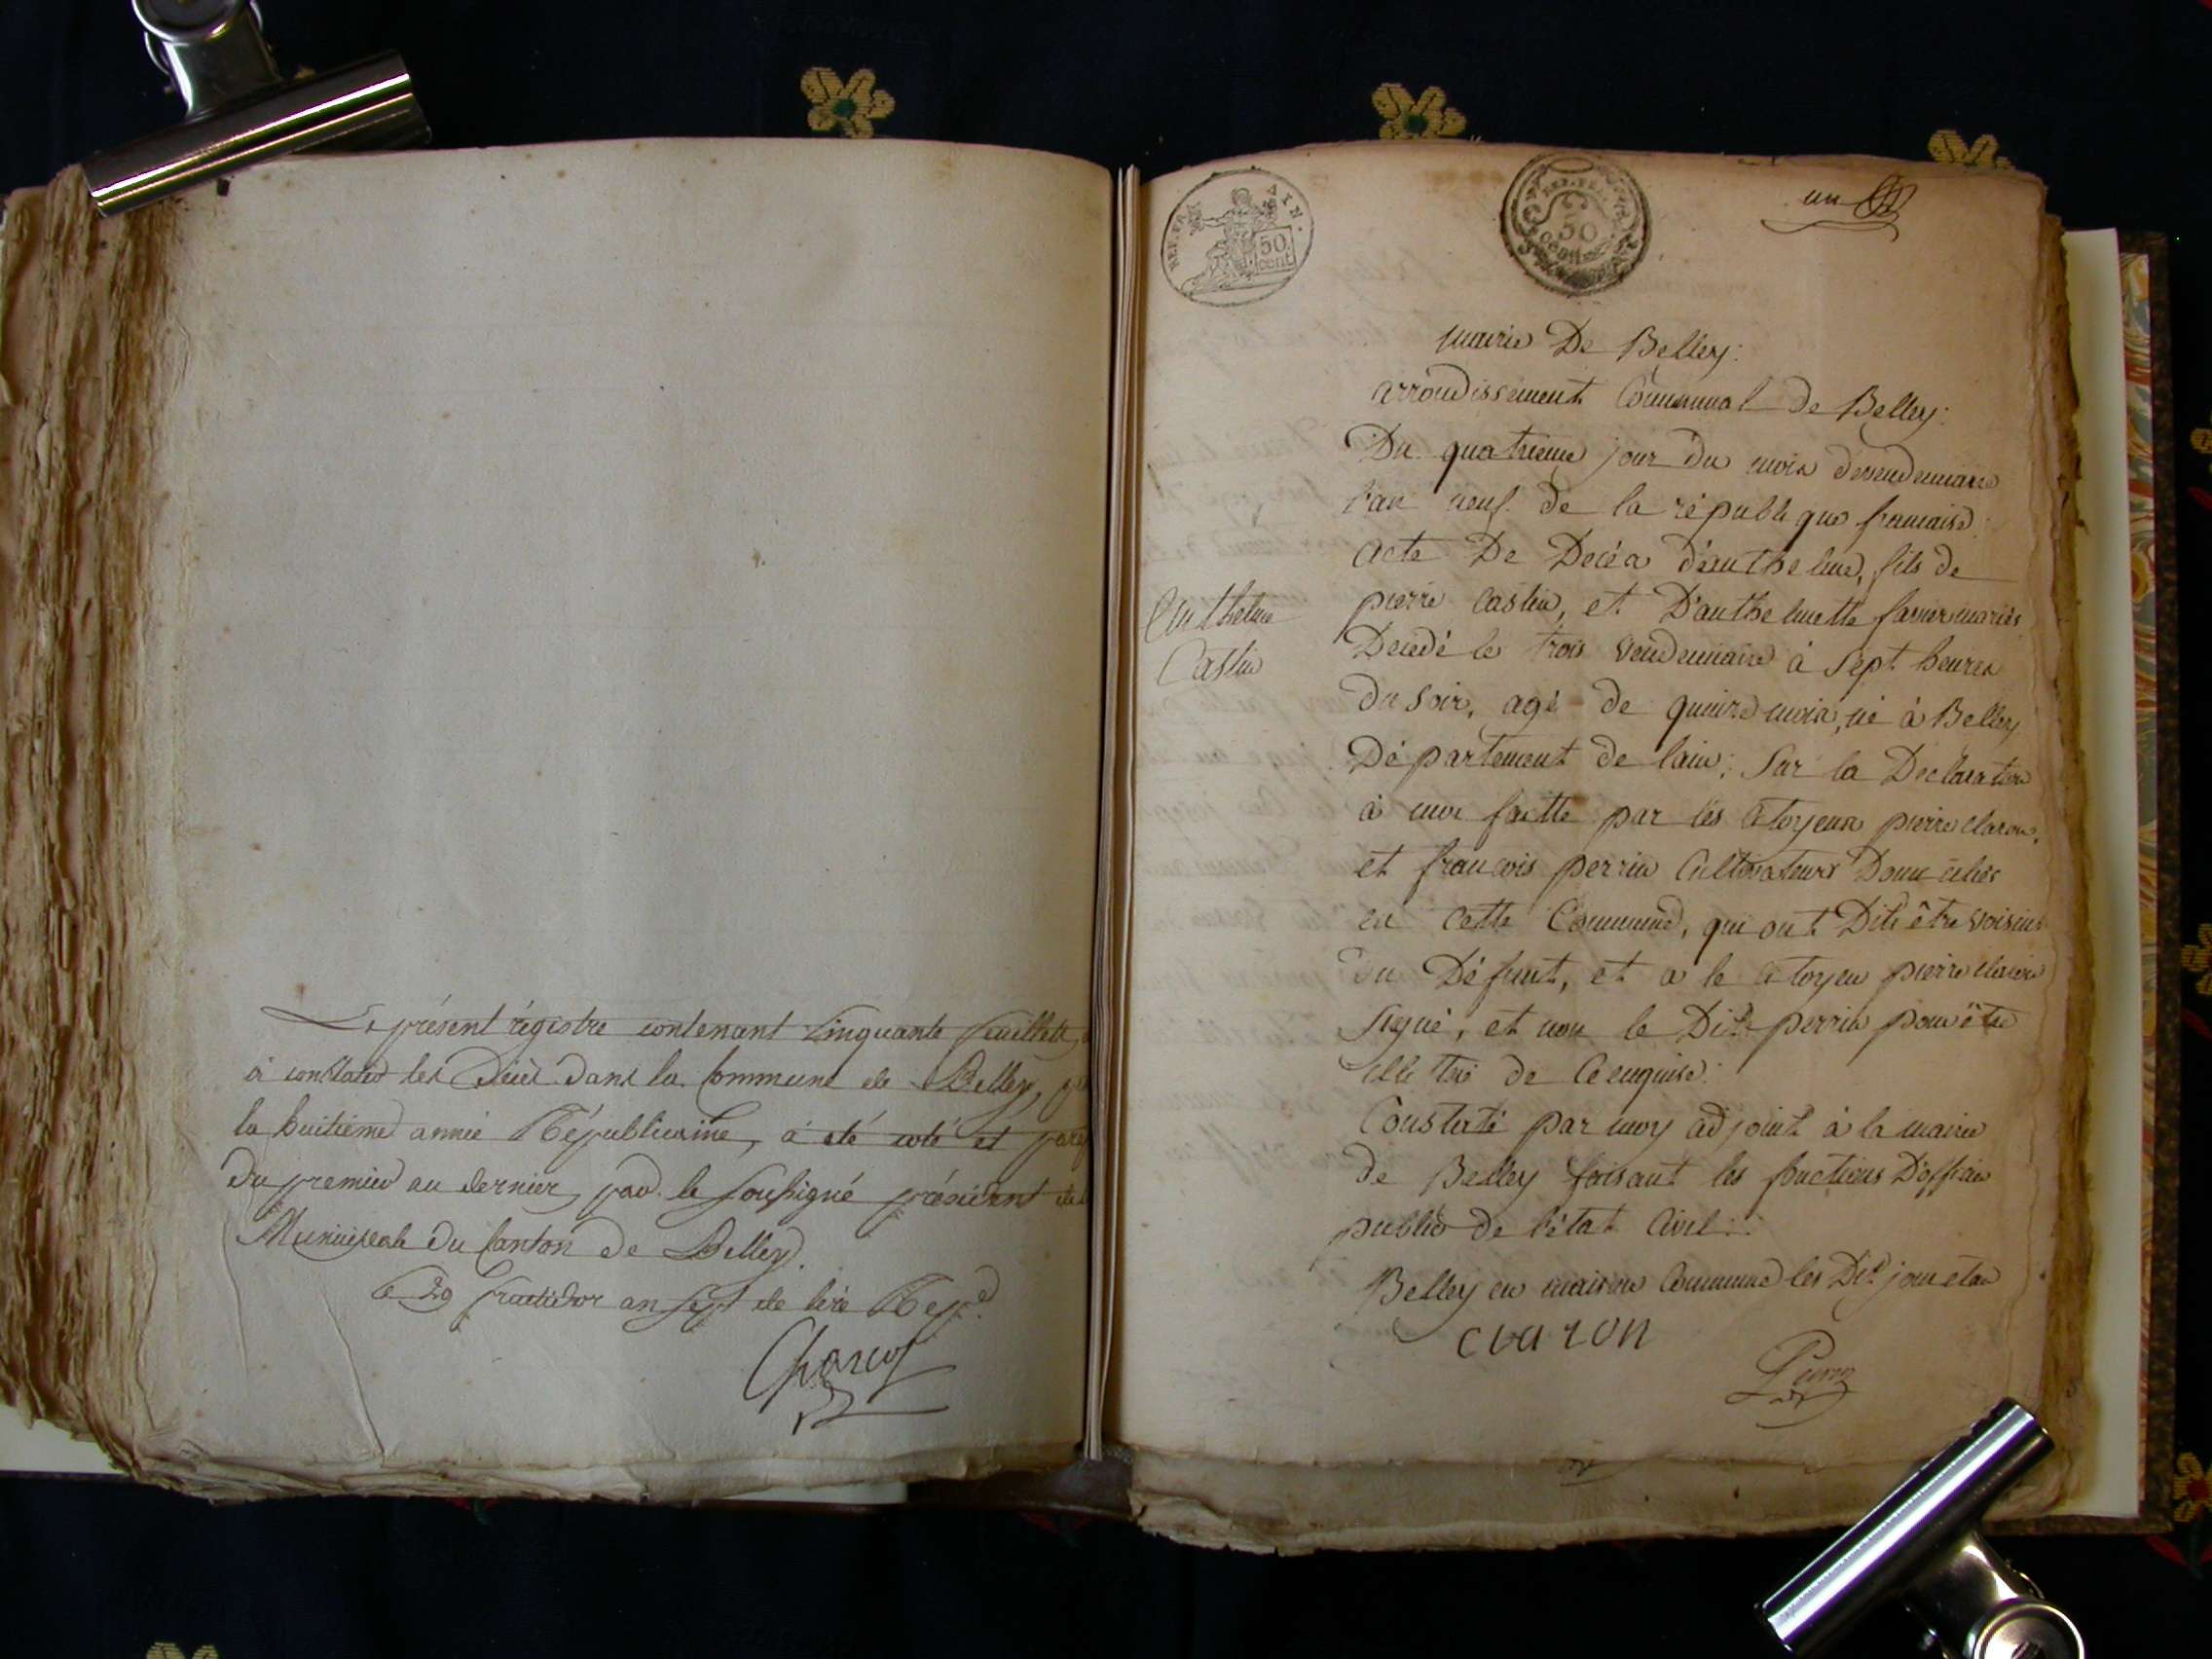 Le présent régistre contenant Cinquante feuillets
à constater les Décès dans la Commune de Belley,
la huitième année Républicaine, a été coté et
du premier au dernier, par le soussigné président
Municipale du Canton de Belley.
Le 29 fructidor an sept de l'ère Rep.
REP. FRA. AIN.
50.
cent.
REP. FRA.
50
centimes
un
mairie De Belley:
arrondissement Communal de Belley:
Du quatrieme jour du mois devendemiaire
l'an neuf de la république francaise:
acte De Decès d'anthelme, fils de
Anthelme
Castin
pierre Castin, et D'anthelmette favier mariés
Decedé le trois vendemiaire à Sept heures
du Soir, agé de quinze mois, né à Belley
Département de lain: Sur la Declaration
à moi faitte par les Citoyens pierre claron,
et francois perrin Cultivateurs Domiciliés
en cette Commune, qui ont Dits être voisins
du Défunt, et a le Citoyen pierre claron
Signé, et non le Dit perrin pour être
illettré de ce enquis:
Constaté par moy adjoint à la mairie
de Belley faisant les fonctions D'officier
public de l'état Civil:
Belley en maison Commune les Dits jour etan
claron